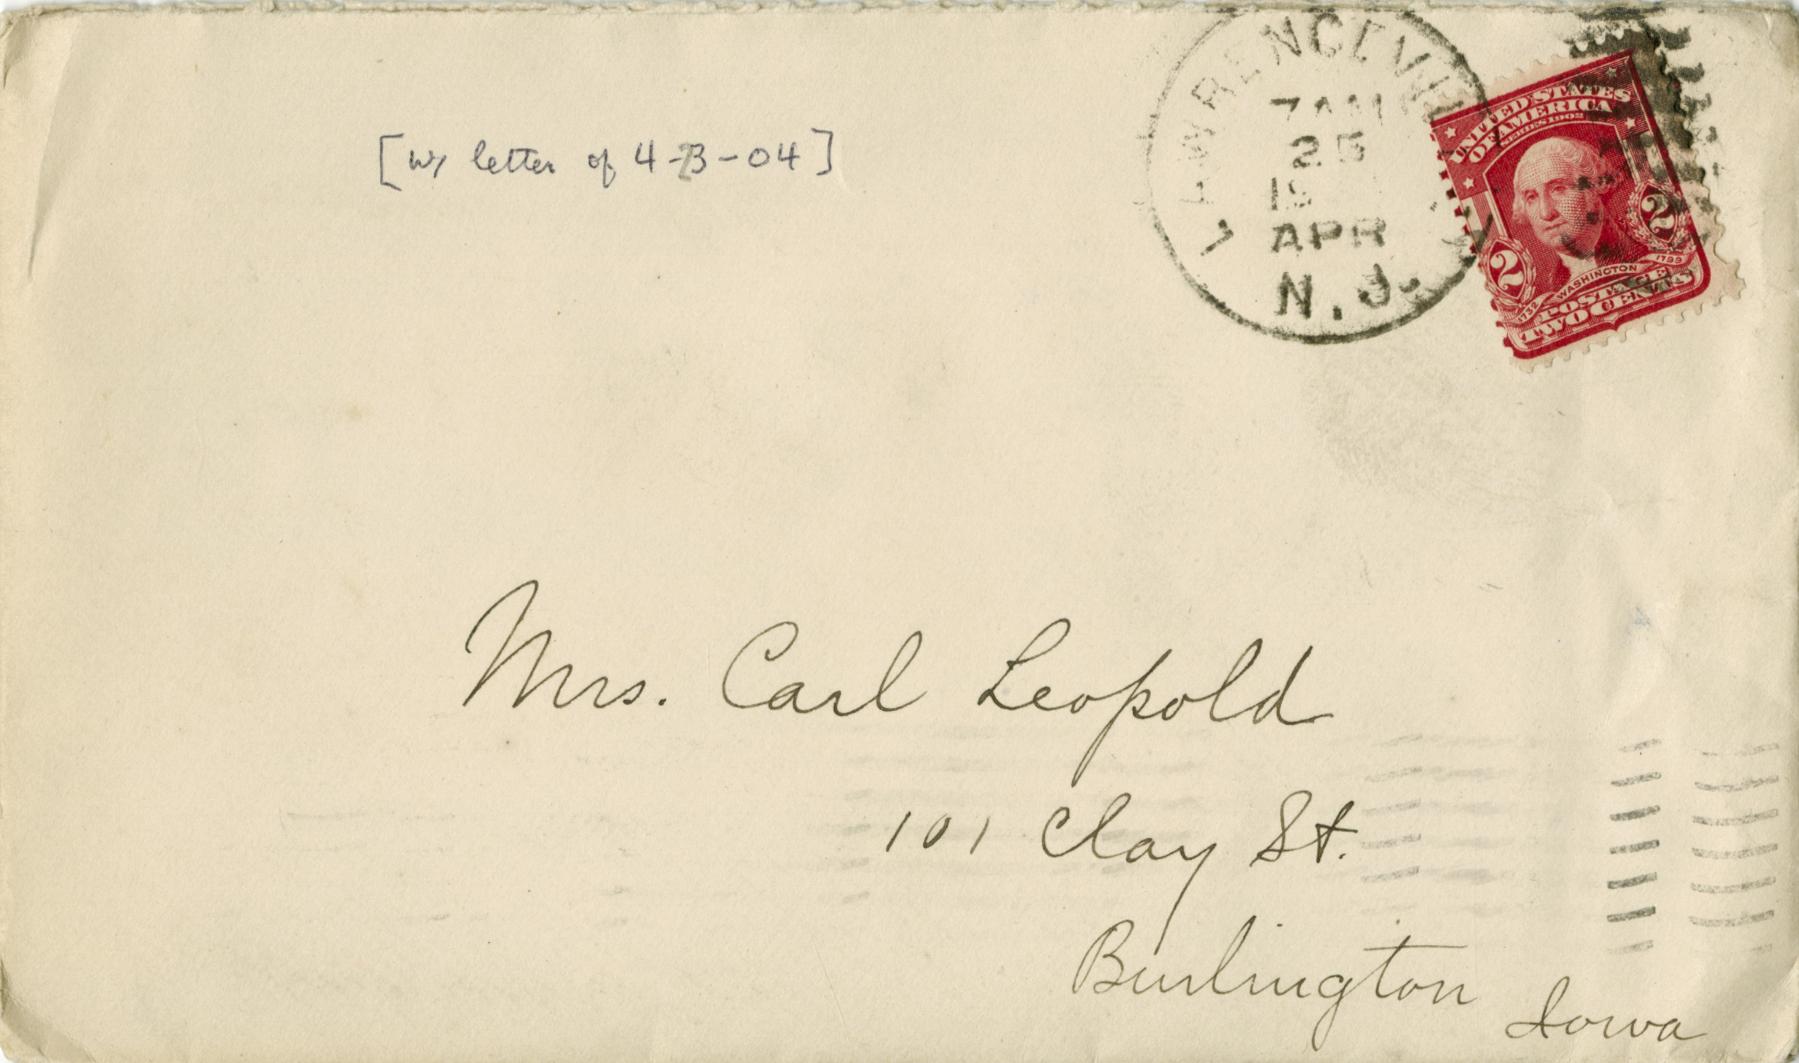 [w/ letter of 4-3-04]
LAWRENCEVILLE
7 AM
25
19
APR
N.J.
UNITED STATES
OF AMERICA
SERIES 1902
2 2
1732 WASHINGTON 1799
POSTAGE
TWO CENTS
Mrs. Carl Leopold
101 Clay St.
Burlington
Iowa